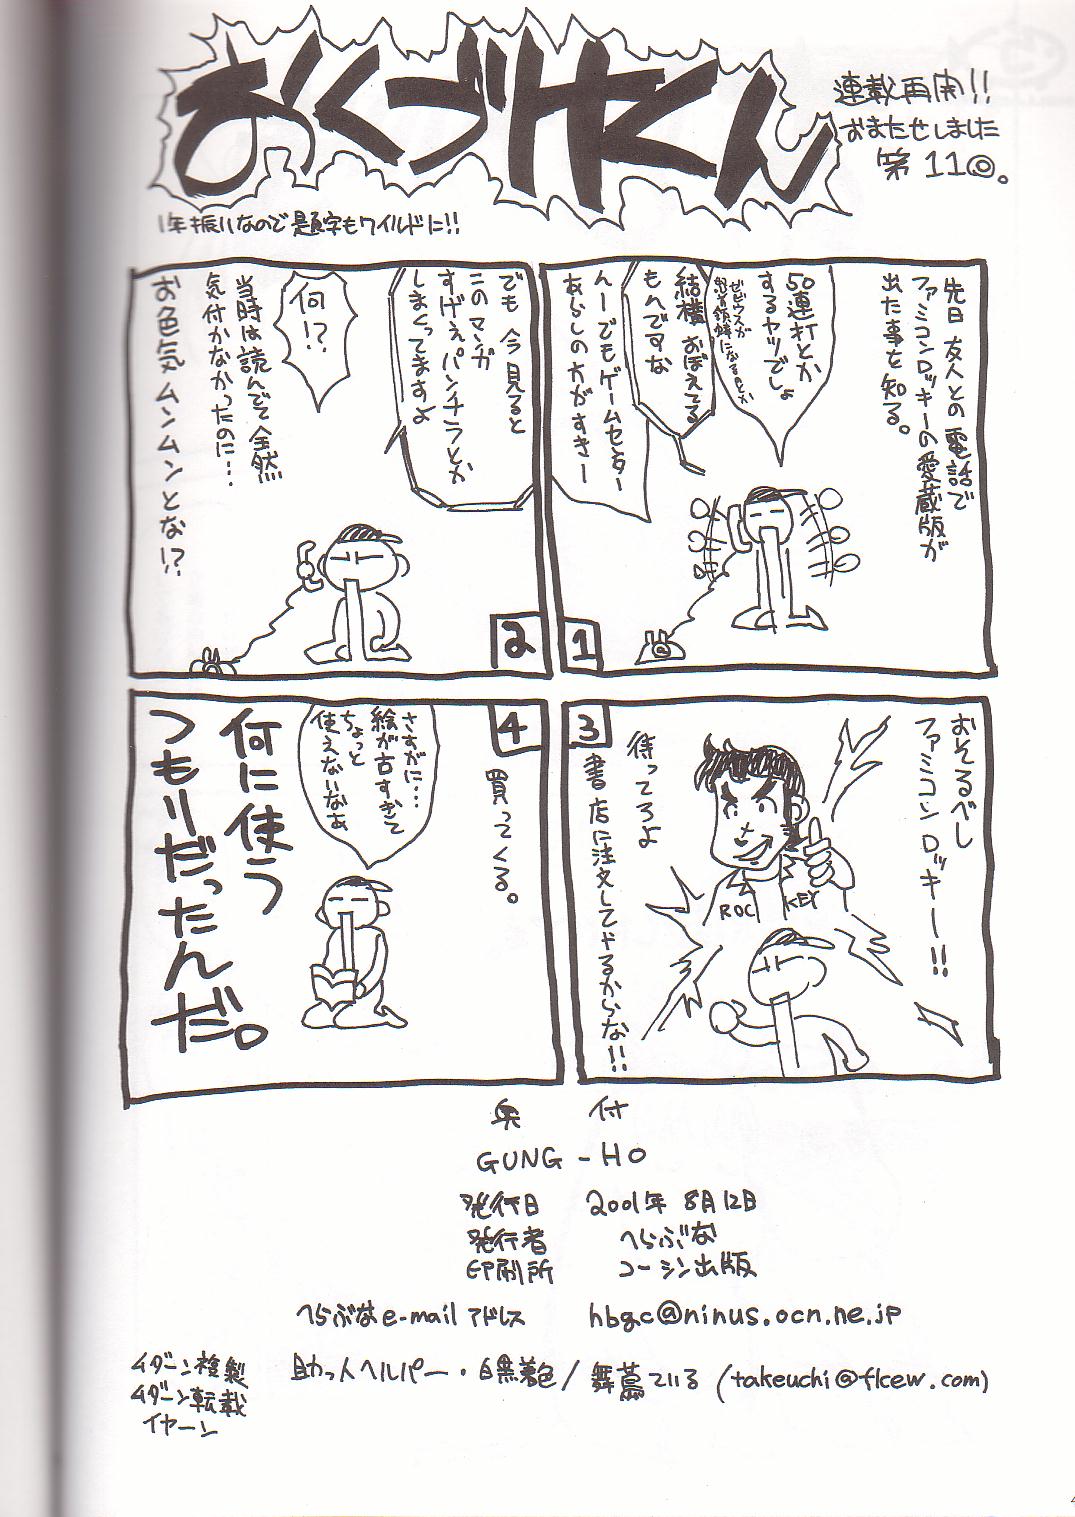 おくづけくん
連載再開!!
おまたせしました
第11回。
1年振りなので題字もワイルドに!!
先日 友人との電話で
ファミコンロッキーの愛蔵版が
出た事を知る。
50連打とか
するヤツでしょ
ゼビウスが
結構 おぼえてる
もんですな
んーでもゲームセンター
あらしの方がすきー
1
でも 今見ると
このマンガ
すげぇパンチラとか
しまくってますよ
何!?
当時は読んでて全然
気付かなかったのに…
お色気ムンムンとな!?
2
おそるべし
ファミコンロッキー!!
ROC KEY
待ってろよ
書店に注文してやるからな!!
3
買ってくる。
さすがに…
絵が古すぎて
ちょっと
使えないなぁ
何に使う
つもりだったんだ。
4
奥付
GUNG-HO
発行日 2001年 8月12日
発行者 へらぶな
印刷所 コーシン出版
へらぶなe-mail アドレス hbgc@ninus.ocn.ne.jp
助っ人ヘルパー・白黒着色/舞蔦ている (takeuchi@flcew.com)
ムダーン複製
ムダーン転載
イヤーン
4